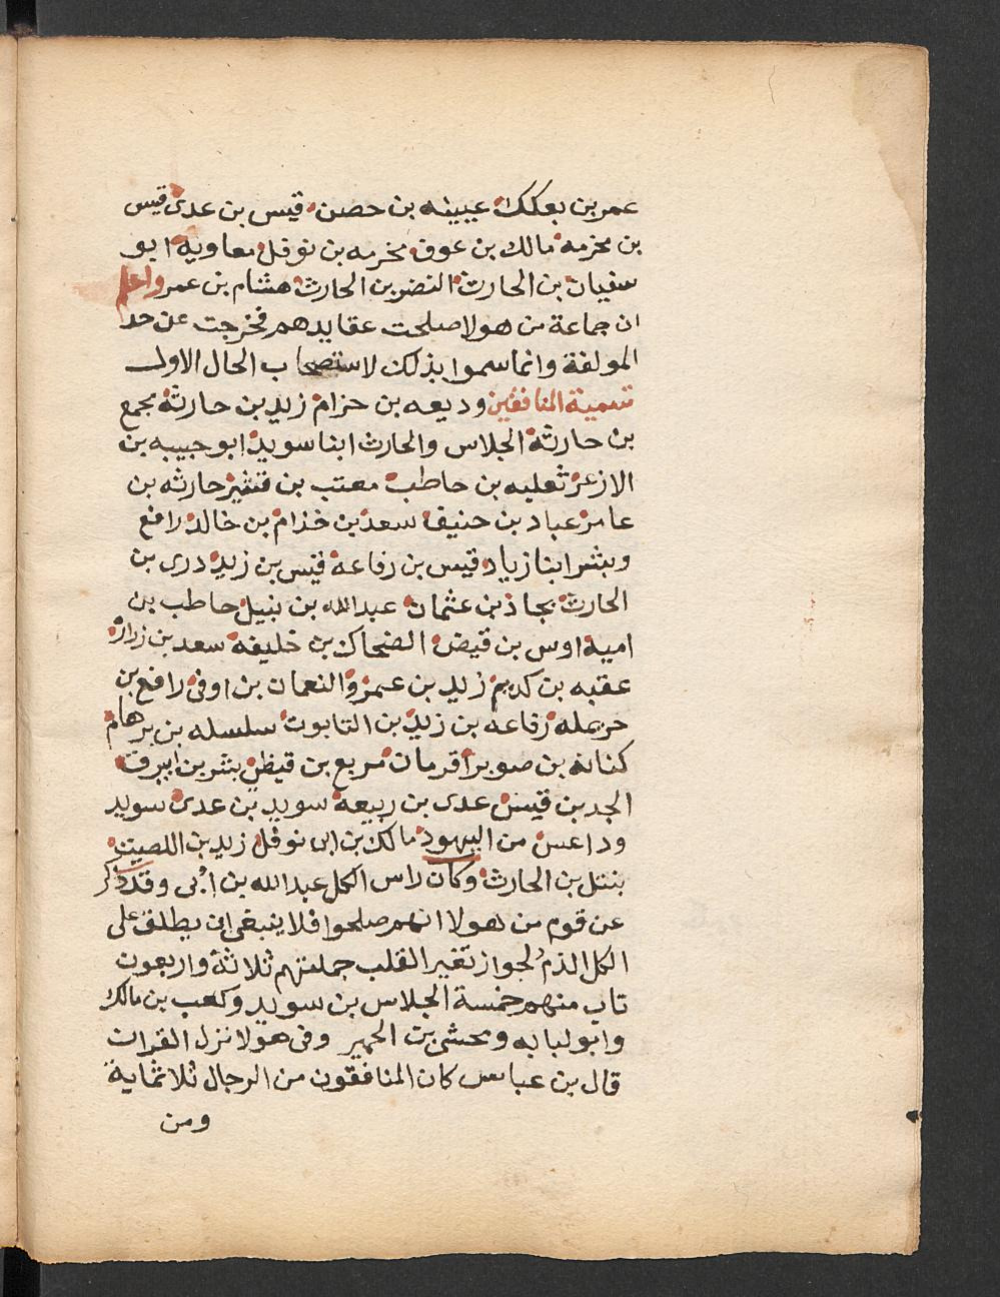 عمر بن بعكك عيينه بن حصن قيس بن عدى قيس
بن مخرمه مالك بن عوف مخرمه بن نوفل معاويه ابو
سفيان بن الحارث النضر بن الحارث هشام بن عمر واعلم
ان جماعة من هولا صلحت عقايدهم فخرجت عن حد
المولفة وانما سموا بذلك لاستصحاب الحال الاول
تسمية المنافقين وديعه بن حزام زيد بن حارثة مجمع
بن حارثة الجلاس والحارث ابنا سويد ابو حبيبه بن
الازعر ثعلبه بن حاطب معتب بن قشير حارثه بن
عامر عباد بن حنيف سعد بن خذام بن خالد رافع
وبشر ابنا زياد قيس بن رفاعة قيس بن زيد درى بن
الحارث بجاد بن عثمان عبدالله بن نبيل حاطب بن
امية اوس بن قيض الضحاك بن خليفه سعد بن زراره
عقبه بن كديم زيد بن عمرو النعمان بن اوفى رافع بن
حريمله رفاعه بن زيد بن التابوت سلسله بن برهام
كنانه بن صويرا قرمان مربع بن قيظى بشر بن ابيرق
الجد بن قيس عدى بن ربيعة سويد بن عدى سويد
وداعس من اليهود مالك بن ابى نوفل زيد بن اللصيت
بنتل بن الحارث وكان راس الكل عبدالله بن أبى وقد ذكر
عن قوم من هولا انهم صلحوا فلا ينبغى ان يطلق على
الكل الذم لجواز تغير القلب جملتهم ثلاثة واربعون
تاب منهم خمسة الجلاس بن سويد وكعب بن مالك
وابو لبابه ومخشى بن الحمير وفى هولا نزل القران
قال بن عباس كان المنافقون من الرجال ثلاثماية
ومن